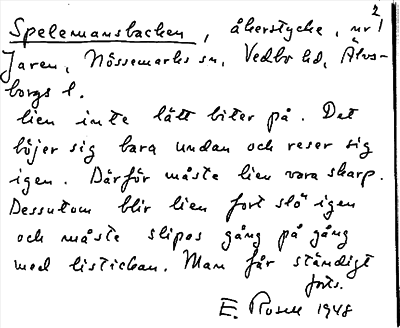 2
Spelemansbacken, åkerstycke, nr 1
Jaren, Nössemarks sn, Vedbo hd, Älvs-
borgs l.
lien inte lätt biter på. Det
böjer sig bara undan och reser sig
igen. Därför måste lien vara skarp.
Dessutom blir lien fort slö igen
och måste slipas gång på gång
med listickan. Man får ständigt
forts.
E. Rosell 1948